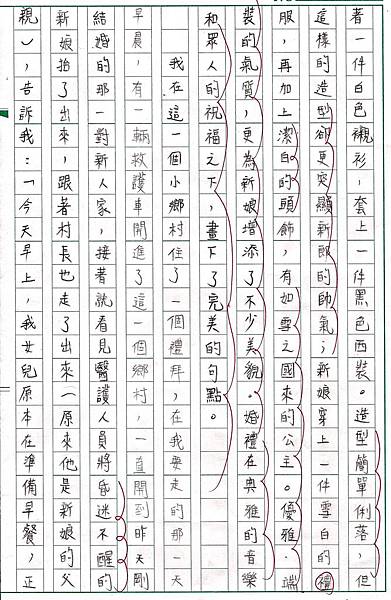 著一件白色襯衫，套上一件黑色西裝。造型簡單俐落，但
這樣的造型卻更突顯新郎的帥氣；新娘穿上一件雪白的禮
服，再加上潔白的頭飾，有如雪之國來的公主。優雅、端
裝的氣質，更為新娘增添了不少美貌。婚禮在典雅的音樂
和眾人的祝福之下，畫下了完美的句點。
我在這一個小鄉村住了一個禮拜，在我要走的那一天
早晨，有一輛救護車開進了這一個鄉村，一直開到昨天剛
結婚的那一對新人家，接著就看見醫護人員將昏迷不醒的
新娘抬了出來，跟著村長也走了出來（原來他是新娘的父
親），告訴我：「今天早上，我女兒原本在準備早餐，正